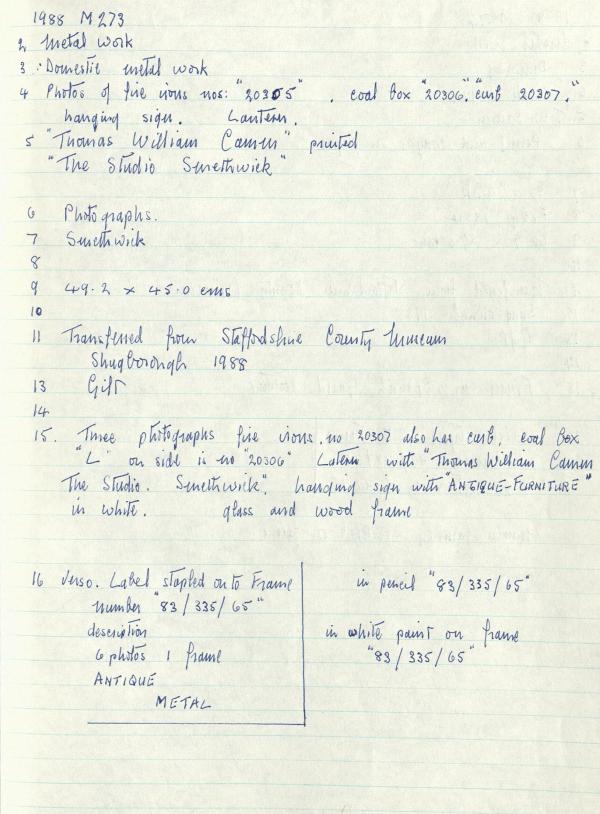 1988 M273
2 Metal work
3 : Domestic metal work
4 Photos of fire irons nos: "20305" . coal box "20306." "curb 20307,"
hanging sign. Lantern.
5 "Thomas William Camm" printed
"The Studio Smethwick"
6 Photographs.
7 Smethwick
8
9 49.2 x 45.0 cms
10
11 Transferred from Staffordshire County Museum
Shugborough 1988
13 Gift
14
15. Three photographs fire irons. no 20307 also has curb, coal box
"L" on side is no "20306" Latern with "Thomas William Camm
The Studio. Smethwick". hanging sign with "ANTIQUE-FURNITURE"
in white. glass and wood frame
16 Verso. Label stapled on to Frame
number "83/335/65"
description
6 photos 1 frame
ANTIQUE
METAL
in pencil "83/335/65"
in white paint on frame
"83/335/65"